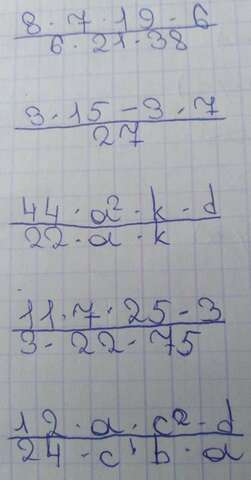 8 · 7 · 19 · 6
6 · 21 · 38
3 · 15 - 3 · 7
27
44 · a² · k · d
22 · a · k
11 · 7 · 25 - 3
3 - 22 - 75
12 · a · c² · d
24 · c · b · a